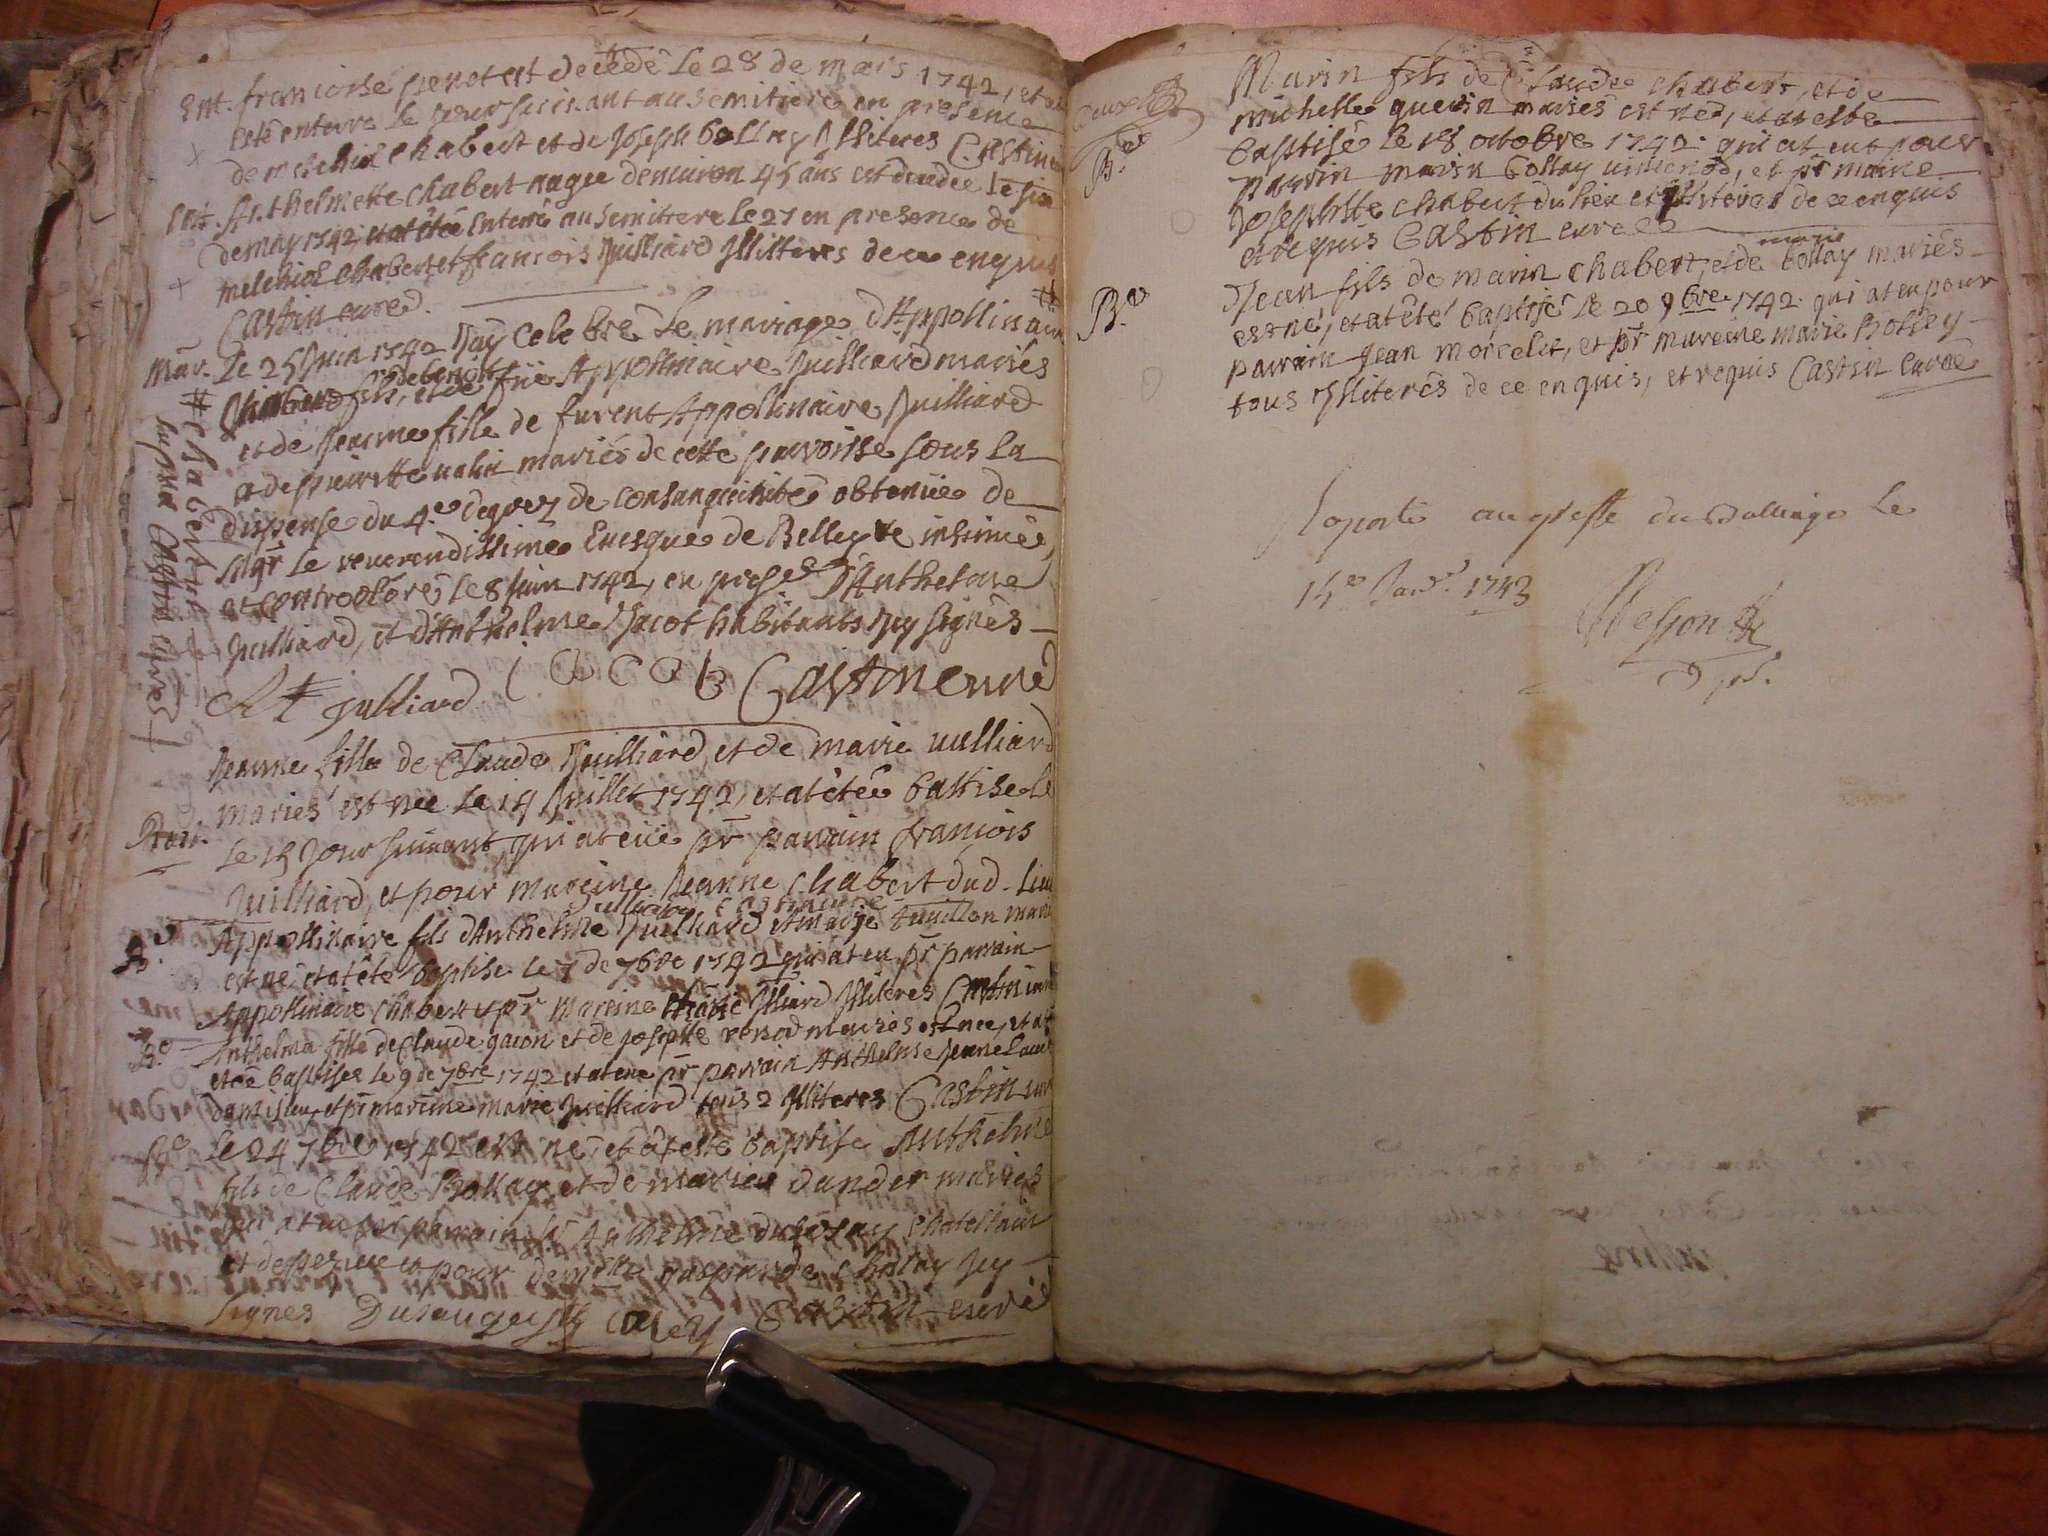 Ent. francoise perret est decedé Le 28 de mars 1742, et at
esté enterre le jour suivant au semitiere en presence
de melchiol chabert et de Joseph bollay Illiteres Castin curé
Ent. Anthelmette chabert aagee denuiron 45 ans est decedee le
de may 1742 et at êtée enterré au semitiere le 27 en presence de
melchiol chabert et francois Juilliard Illiteres de ce enquis
Castin curé.
Mar. Le 25 Juin 1742 Jay celebré Le mariage d'Appollinaire #
chabert fils de benoit et de fuë Appollinaire Juilliard mariés
et de Jeanne fille de furent Appollinaire Juilliard
et de pierrette mariés de cette parroisse sous La
dispense du 4.e degrez de consanguinité obtenüe de
Mgr Le reverendissime Evesque de Belley insinuée,
et controoloré, le 8 Juin 1742, en prese d'Anthelme
Juilliard, et d'Anthelme Jacot habitants Icy signés
# chabert
Castin curé
At Julliard Castin curé
Jeanne fille de Claude Juilliard, et de marie vulliard
mariés est née Le 14 Juillet 1742, et at êtée battisé le
Bat. Le 15 Jour suivant, qui at eüe pr parrain francois
Juilliard, et pour mareine Jeanne chabert dud. Lieu
Juilliard Castin curé
B.e Appollinaire fils d'Anthelme Juilliard et marie mariés
est né et at êté baptise Le 7 de 7bre 1742 qui at eu pr parrain
Appollinaire chabert et pr mareine Illiard Illiteres Castin curé
B.e Anthelma fille de Claude gacon et de josepte renod mariés est nee, et at
etée baptisee le 9 de 7bre 1742 et at eue pr parrain Anthelme
et pr mareine marie Juilliard tous 2 Illiteres Castin curé
B.e Le 24 7bre 1742 est né, et at esté baptise Anthelme
fils de Claude Bollay, et de marie dander mariés
qui at eu pr parrain Sr Anthelme dujsay, chatelain
et pour demelle gasparde chaley Icy
signés Castin curé
B.e Marin fils de Claude chabert, et de
michelle guerin mariés est né, et at esté
baptisé Le 18 octobre 1742. qui at eut pour
parrin marin bollay, et pr maine
Josephte chabert du lieu et Illiteres de ce enquis
et requis Castin curé
marie
B.e Jean fils de marin chabert, et de bollay mariés
est né, et at êté baptisé Le 20 9bre 1742. qui at eu pour
parrain Jean morcelit, et pr mareine marie Bolley
tous Illiterés de ce enquis, et requis Castin curé
Raporté au greffe du Balliage Le
15.e Janv. 1743